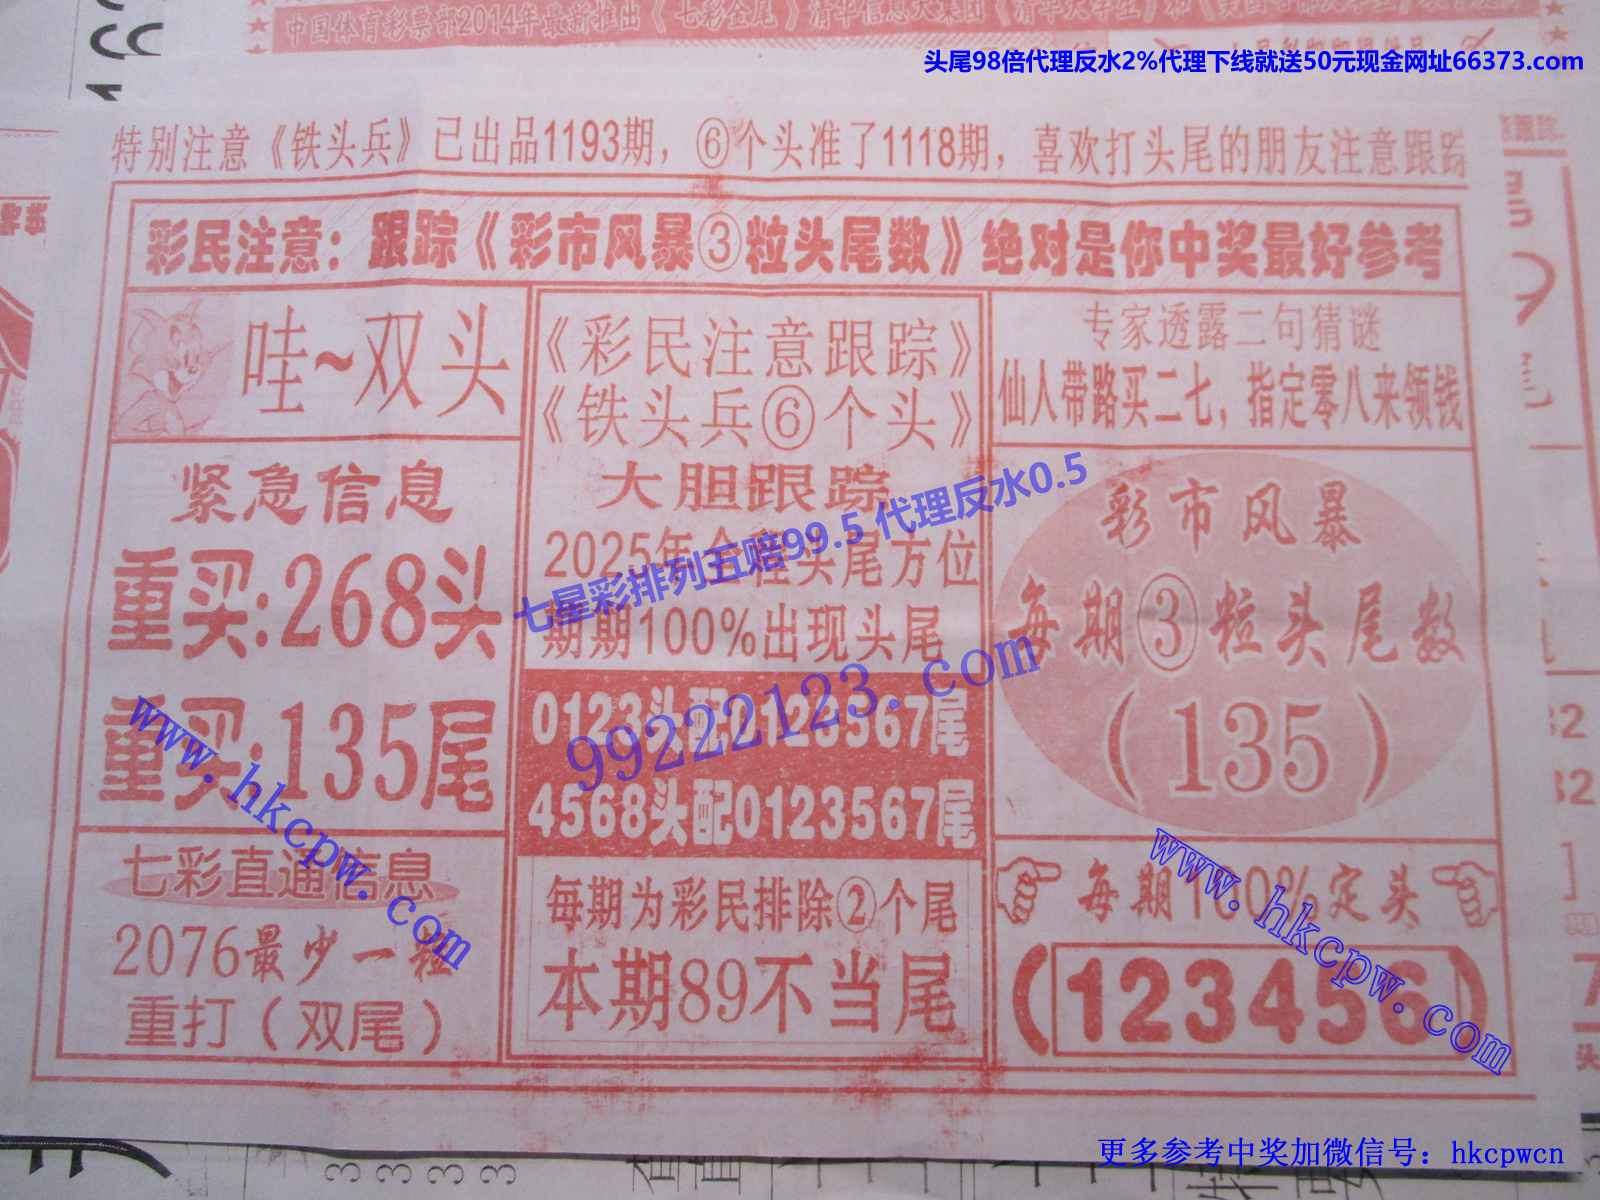 中国体育彩票部2014年最新推出《七彩全尾》清华信息大集团《清华大学生》和
头尾98倍代理反水2%代理下线就送50元现金网址66373.com
特别注意《铁头兵》已出品1193期，⑥个头准了1118期，喜欢打头尾的朋友注意跟踪
彩民注意：跟踪《彩市风暴③粒头尾数》绝对是你中奖最好参考
哇~双头
紧急信息
重买:268头
重买:135尾
七彩直通信息
2076最少一粒
重打（双尾）
《彩民注意跟踪》
《铁头兵⑥个头》
大胆跟踪
2025年全程头尾方位
期期100%出现头尾
0123头配0123567尾
4568头配0123567尾
每期为彩民排除②个尾
本期89不当尾
专家透露二句猜谜
仙人带路买二七，指定零八来领钱
彩市风暴
每期③粒头尾数
（135）
每期100%定头
（123456）
七星彩排列五赔99.5 代理反水0.5
99222123.com
www.hkcpw.com
www.hkcpw.com
更多参考中奖加微信号：hkcpwcn